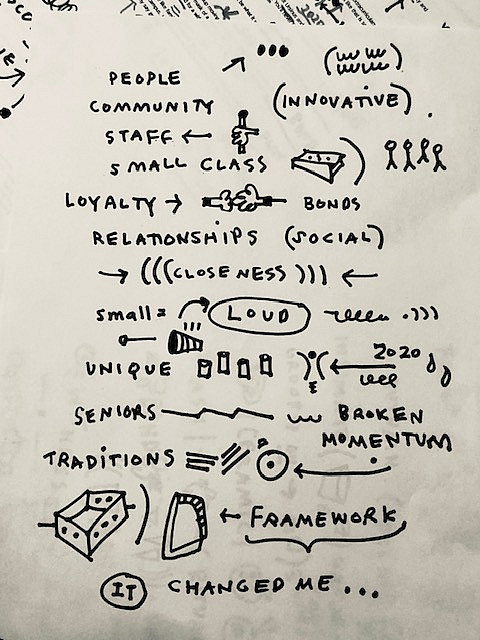 PEOPLE
COMMUNITY (INNOVATIVE).
STAFF ←
SMALL CLASS
LOYALTY → BONDS
RELATIONSHIPS (SOCIAL)
→ (((CLOSENESS))) ←
small = LOUD
UNIQUE 2020
SENIORS BROKEN
MOMENTUM
TRADITIONS
← FRAMEWORK
IT CHANGED ME...